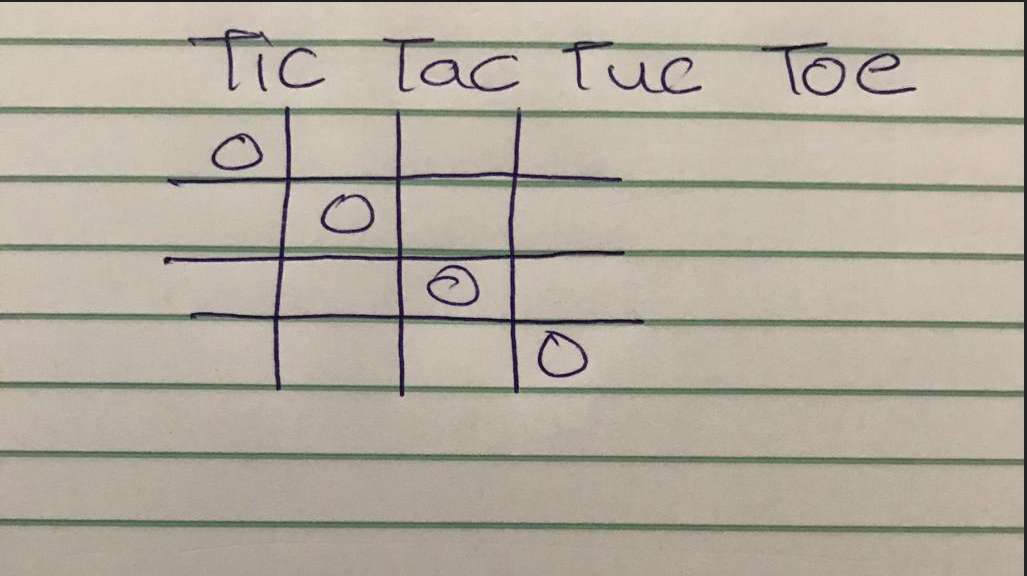 Tic Tac Tuc Toe
O
O
O
O